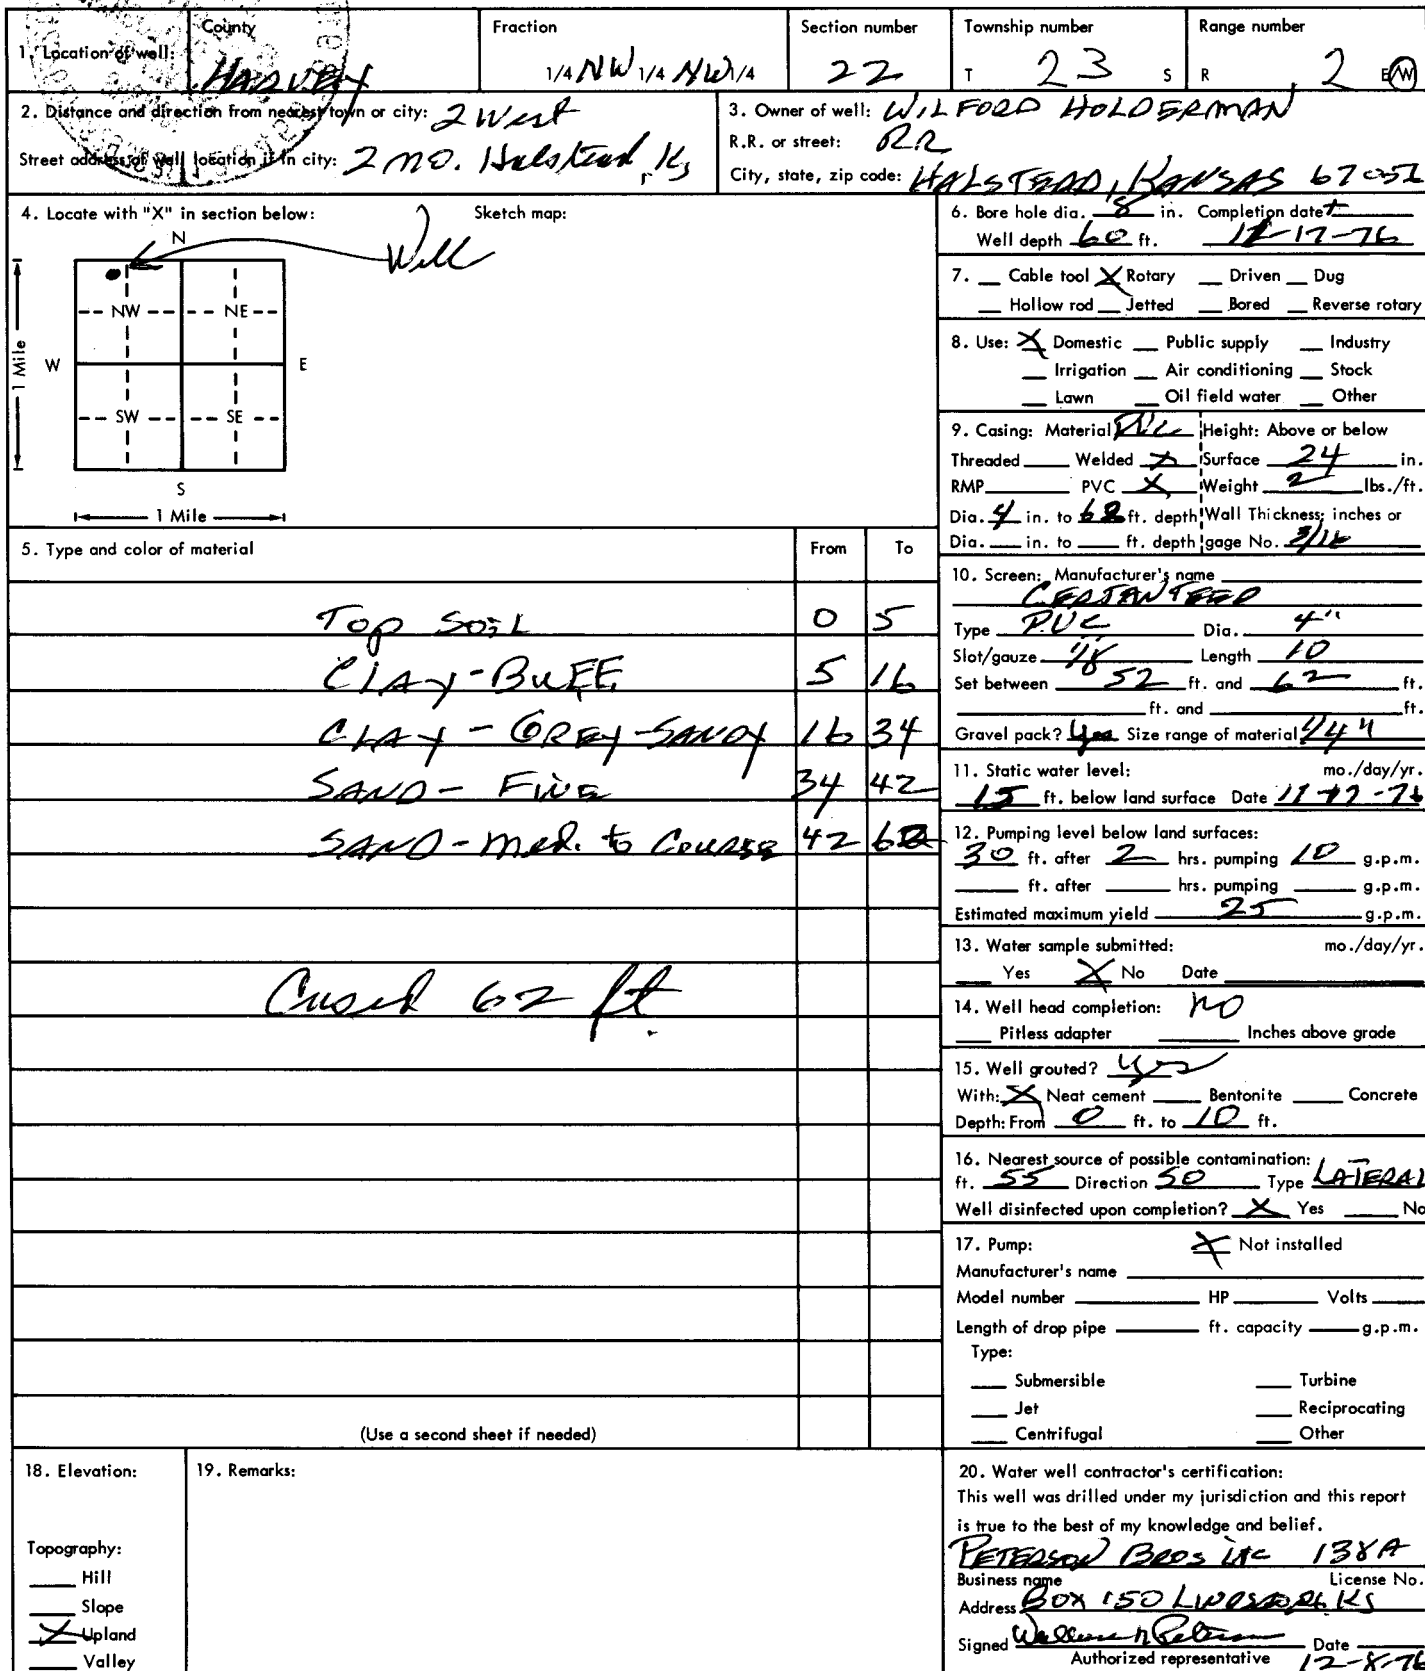 1. Location of well:
County
HARVEY
Fraction
1/4 NW 1/4 NW 1/4
Section number
22
Township number
T 23 S
Range number
R 2 E/W
2. Distance and direction from nearest town or city: 2 West
Street address of well location if in city: 2 no. Halstead, Ks
3. Owner of well: WILFORD HOLDERMAN
R.R. or street: RR
City, state, zip code: HALSTEAD, KANSAS 67056
4. Locate with "X" in section below:
Sketch map:
N
Well
NW NE
W E
1 Mile
SW SE
S
1 Mile
5. Type and color of material From To
Top Soil 0 5
CLAY-BUFF 5 16
CLAY - GREY-SANDY 16 34
SAND - FINE 34 42
SAND - Med. to Course 42 62
Cased 62 ft.
(Use a second sheet if needed)
6. Bore hole dia. 8 in. Completion date
Well depth 60 ft. 11-17-76
7. Cable tool X Rotary Driven Dug
Hollow rod Jetted Bored Reverse rotary
8. Use: X Domestic Public supply Industry
Irrigation Air conditioning Stock
Lawn Oil field water Other
9. Casing: Material PVC Height: Above or below
Threaded Welded X Surface 24 in.
RMP PVC X Weight 2 lbs./ft.
Dia. 4 in. to 62 ft. depth Wall Thickness: inches or
Dia. in. to ft. depth gage No. 3/16
10. Screen: Manufacturer's name
CERTANTEED
Type PVC Dia. 4"
Slot/gauze 1/8" Length 10
Set between 52 ft. and 62 ft.
ft. and ft.
Gravel pack? Yes Size range of material 1/4"
11. Static water level: mo./day/yr.
15 ft. below land surface Date 11-17-76
12. Pumping level below land surfaces:
30 ft. after 2 hrs. pumping 10 g.p.m.
ft. after hrs. pumping g.p.m.
Estimated maximum yield 25 g.p.m.
13. Water sample submitted: mo./day/yr.
Yes X No Date
14. Well head completion: no
Pitless adapter Inches above grade
15. Well grouted? yes
With: X Neat cement Bentonite Concrete
Depth: From 0 ft. to 10 ft.
16. Nearest source of possible contamination:
ft. 55 Direction SO Type LATERAL
Well disinfected upon completion? X Yes No
17. Pump: X Not installed
Manufacturer's name
Model number HP Volts
Length of drop pipe ft. capacity g.p.m.
Type:
Submersible Turbine
Jet Reciprocating
Centrifugal Other
18. Elevation:
Topography:
Hill
Slope
X Upland
Valley
19. Remarks:
20. Water well contractor's certification:
This well was drilled under my jurisdiction and this report
is true to the best of my knowledge and belief.
PETERSON BROS INC 138A
Business name License No.
Address BOX 150 Ks
Signed Peterson Date
Authorized representative 12-8-76